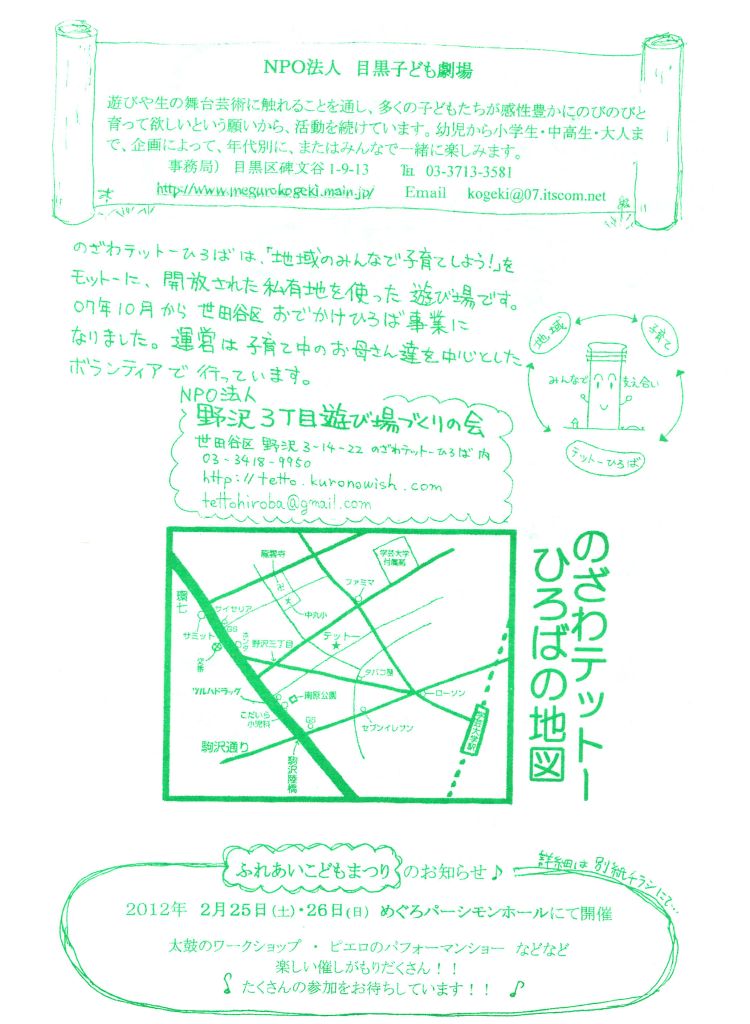 NPO法人　目黒子ども劇場
遊びや生の舞台芸術に触れることを通し、多くの子どもたちが感性豊かにのびのびと
育って欲しいという願いから、活動を続けています。幼児から小学生・中高生・大人ま
で、企画によって、年代別に、またはみんなで一緒に楽しみます。
事務局）　目黒区碑文谷1-9-13　　℡　03-3713-3581
http://www.megurokogeki.main.jp/　　Email　kogeki@07.itscom.net
のざわテットーひろばは、「地域のみんなで子育てしよう！」を
モットーに、開放された私有地を使った遊び場です。
07年10月から世田谷区おでかけひろば事業に
なりました。運営は子育て中のお母さん達を中心とした
ボランティアで行っています。
地域
子育て
みんなで
支え合い
テットーひろば
NPO法人
野沢3丁目遊び場づくりの会
世田谷区 野沢3-14-22 のざわテットーひろば内
03-3418-9950
http://tetto.kuronowish.com
tettohiroba@gmail.com
のざわテットー
ひろばの地図
龍雲寺
学芸大学
付属高
環七
卍
文
ファミマ
サイゼリア
中丸小
サミット
GS
ホンダ
野沢三丁目
テットー
★
交番
タバコ屋
ツルハドラッグ
南原公園
ローソン
こだいら
小児科
GS
セブンイレブン
学芸大学駅
駒沢通り
駒沢陸橋
ふれあいこどもまつり のお知らせ♪
詳細は別紙チラシにて…
2012年　2月25日(土)・26日(日)　めぐろパーシモンホールにて開催
太鼓のワークショップ　・　ピエロのパフォーマンショー　などなど
楽しい催しがもりだくさん！！
♪ たくさんの参加をお待ちしています！！ ♪